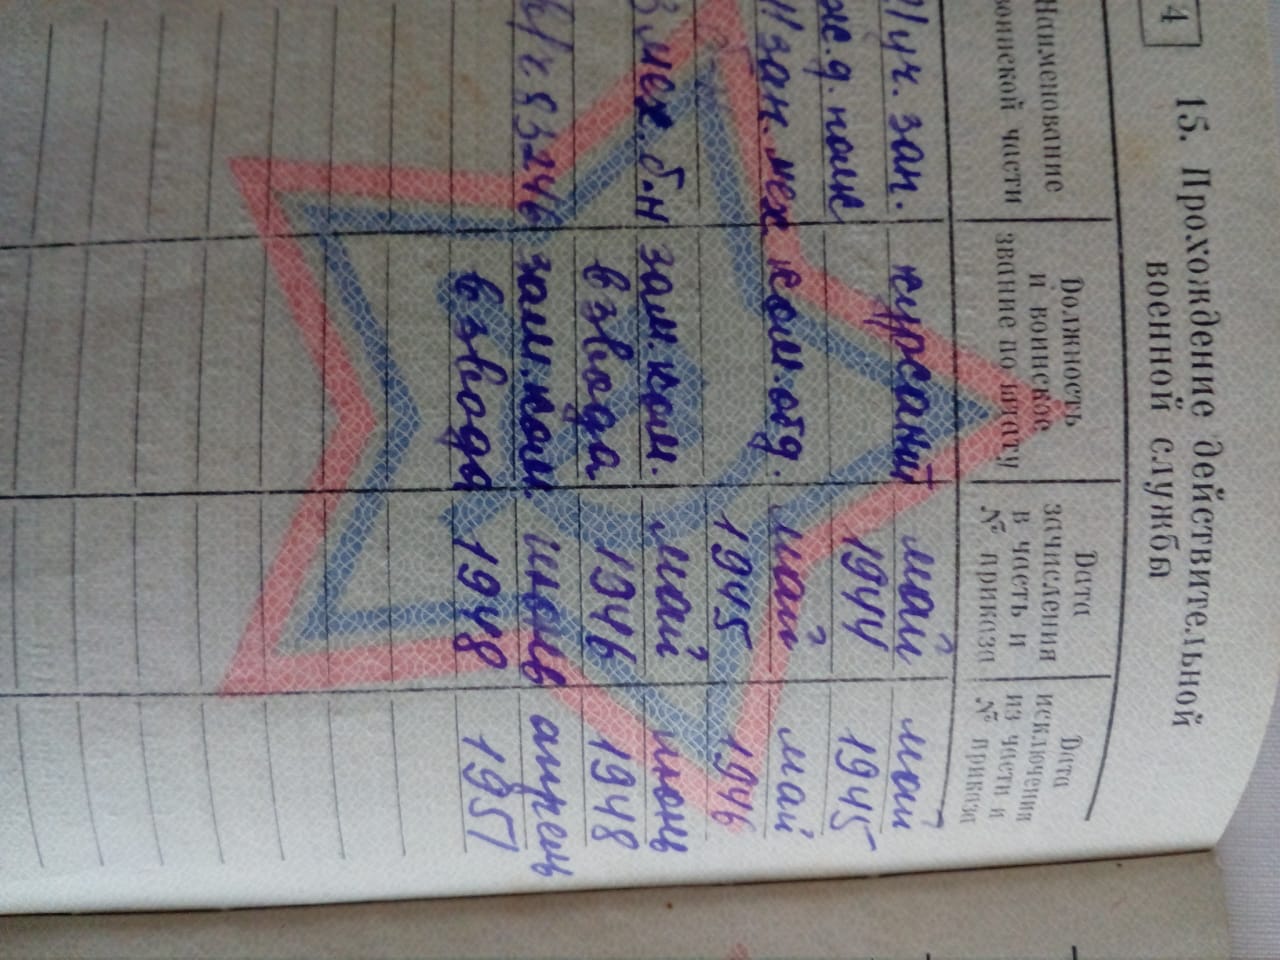 4
15. Прохождение действительной
военной службы
Наименование
воинской части
Должность
и воинское
звание по штату
Дата
зачисления
в часть и
№ приказа
Дата
исключения
из части и
№ приказа
21 уч. зап. курсант май май
ж.д. полк 1944 1945
11 зап. мех ком. отд. май май
1945 1946
3 мех. б.н зам. ком. май июнь
взвода 1946 1948
в/ч. 83246 зам. ком июнь апрель
взвода 1948 1951